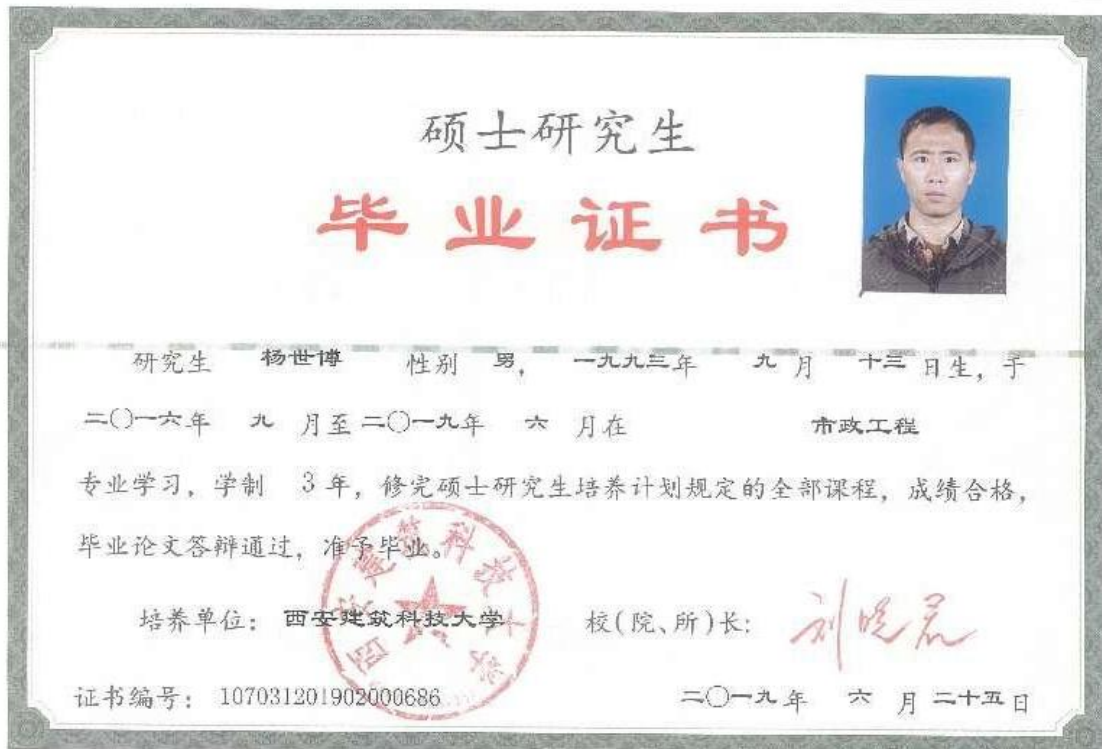 硕士研究生
毕业证书
研究生 杨世博 性别 男， 一九九三年 九 月 十三 日生，于
二〇一六年 九 月至二〇一九年 六 月在 市政工程
专业学习，学制 3 年，修完硕士研究生培养计划规定的全部课程，成绩合格，
毕业论文答辩通过，准予毕业。
培养单位：西安建筑科技大学 校（院、所）长：刘晓君
西安建筑科技大学
证书编号：107031201902000686 二〇一九年 六 月 二十五日